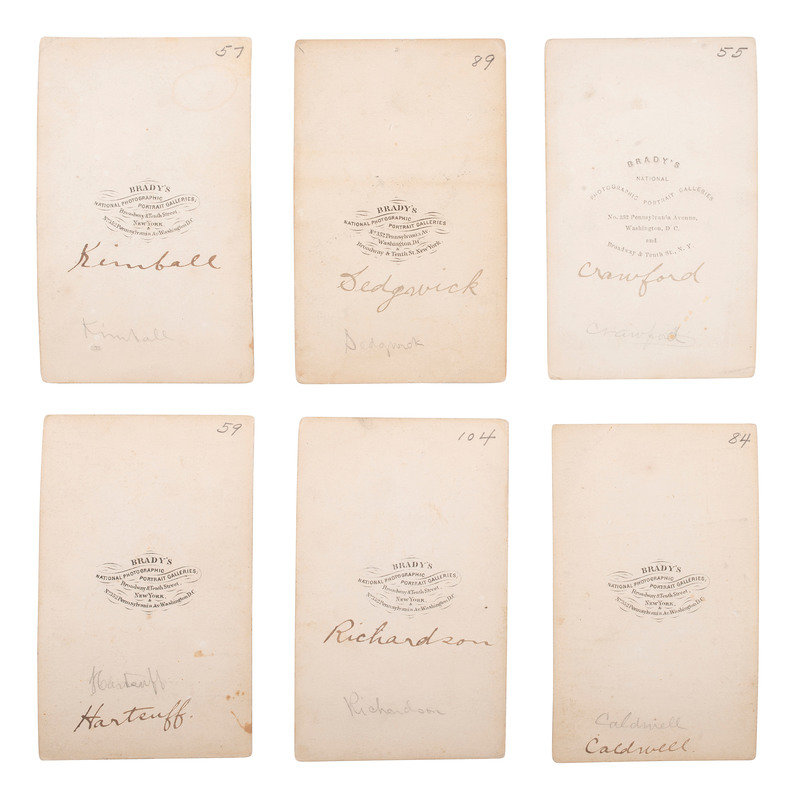 57
BRADY'S
NATIONAL PHOTOGRAPHIC
PORTRAIT GALLERIES,
Broadway & Tenth Street
NEW YORK
&
No. 352 Pennsylvania Av. Washington, D.C.
Kimball
Kimball
89
BRADY'S
NATIONAL PHOTOGRAPHIC
PORTRAIT GALLERIES
No. 352 Pennsylvania Av.
Washington, D.C.
&
Broadway & Tenth St. New York
Sedgwick
Sedgwick
55
BRADY'S
NATIONAL
PHOTOGRAPHIC PORTRAIT GALLERIES,
No. 352 Pennsylvania Avenue,
Washington, D. C.
and
Broadway & Tenth St., N. Y.
Crawford
Crawford
59
BRADY'S
NATIONAL PHOTOGRAPHIC
PORTRAIT GALLERIES,
Broadway & Tenth Street,
NEW YORK
&
No. 352 Pennsylvania Av. Washington, D.C.
Hartsuff
Hartsuff.
104
BRADY'S
NATIONAL PHOTOGRAPHIC
PORTRAIT GALLERIES,
Broadway & Tenth Street,
NEW YORK
&
No. 352 Pennsylvania Av. Washington, D.C.
Richardson
Richardson
84
BRADY'S
NATIONAL PHOTOGRAPHIC
PORTRAIT GALLERIES,
Broadway & Tenth Street,
NEW YORK
&
No. 352 Pennsylvania Av. Washington, D.C.
Caldwell
Caldwell.